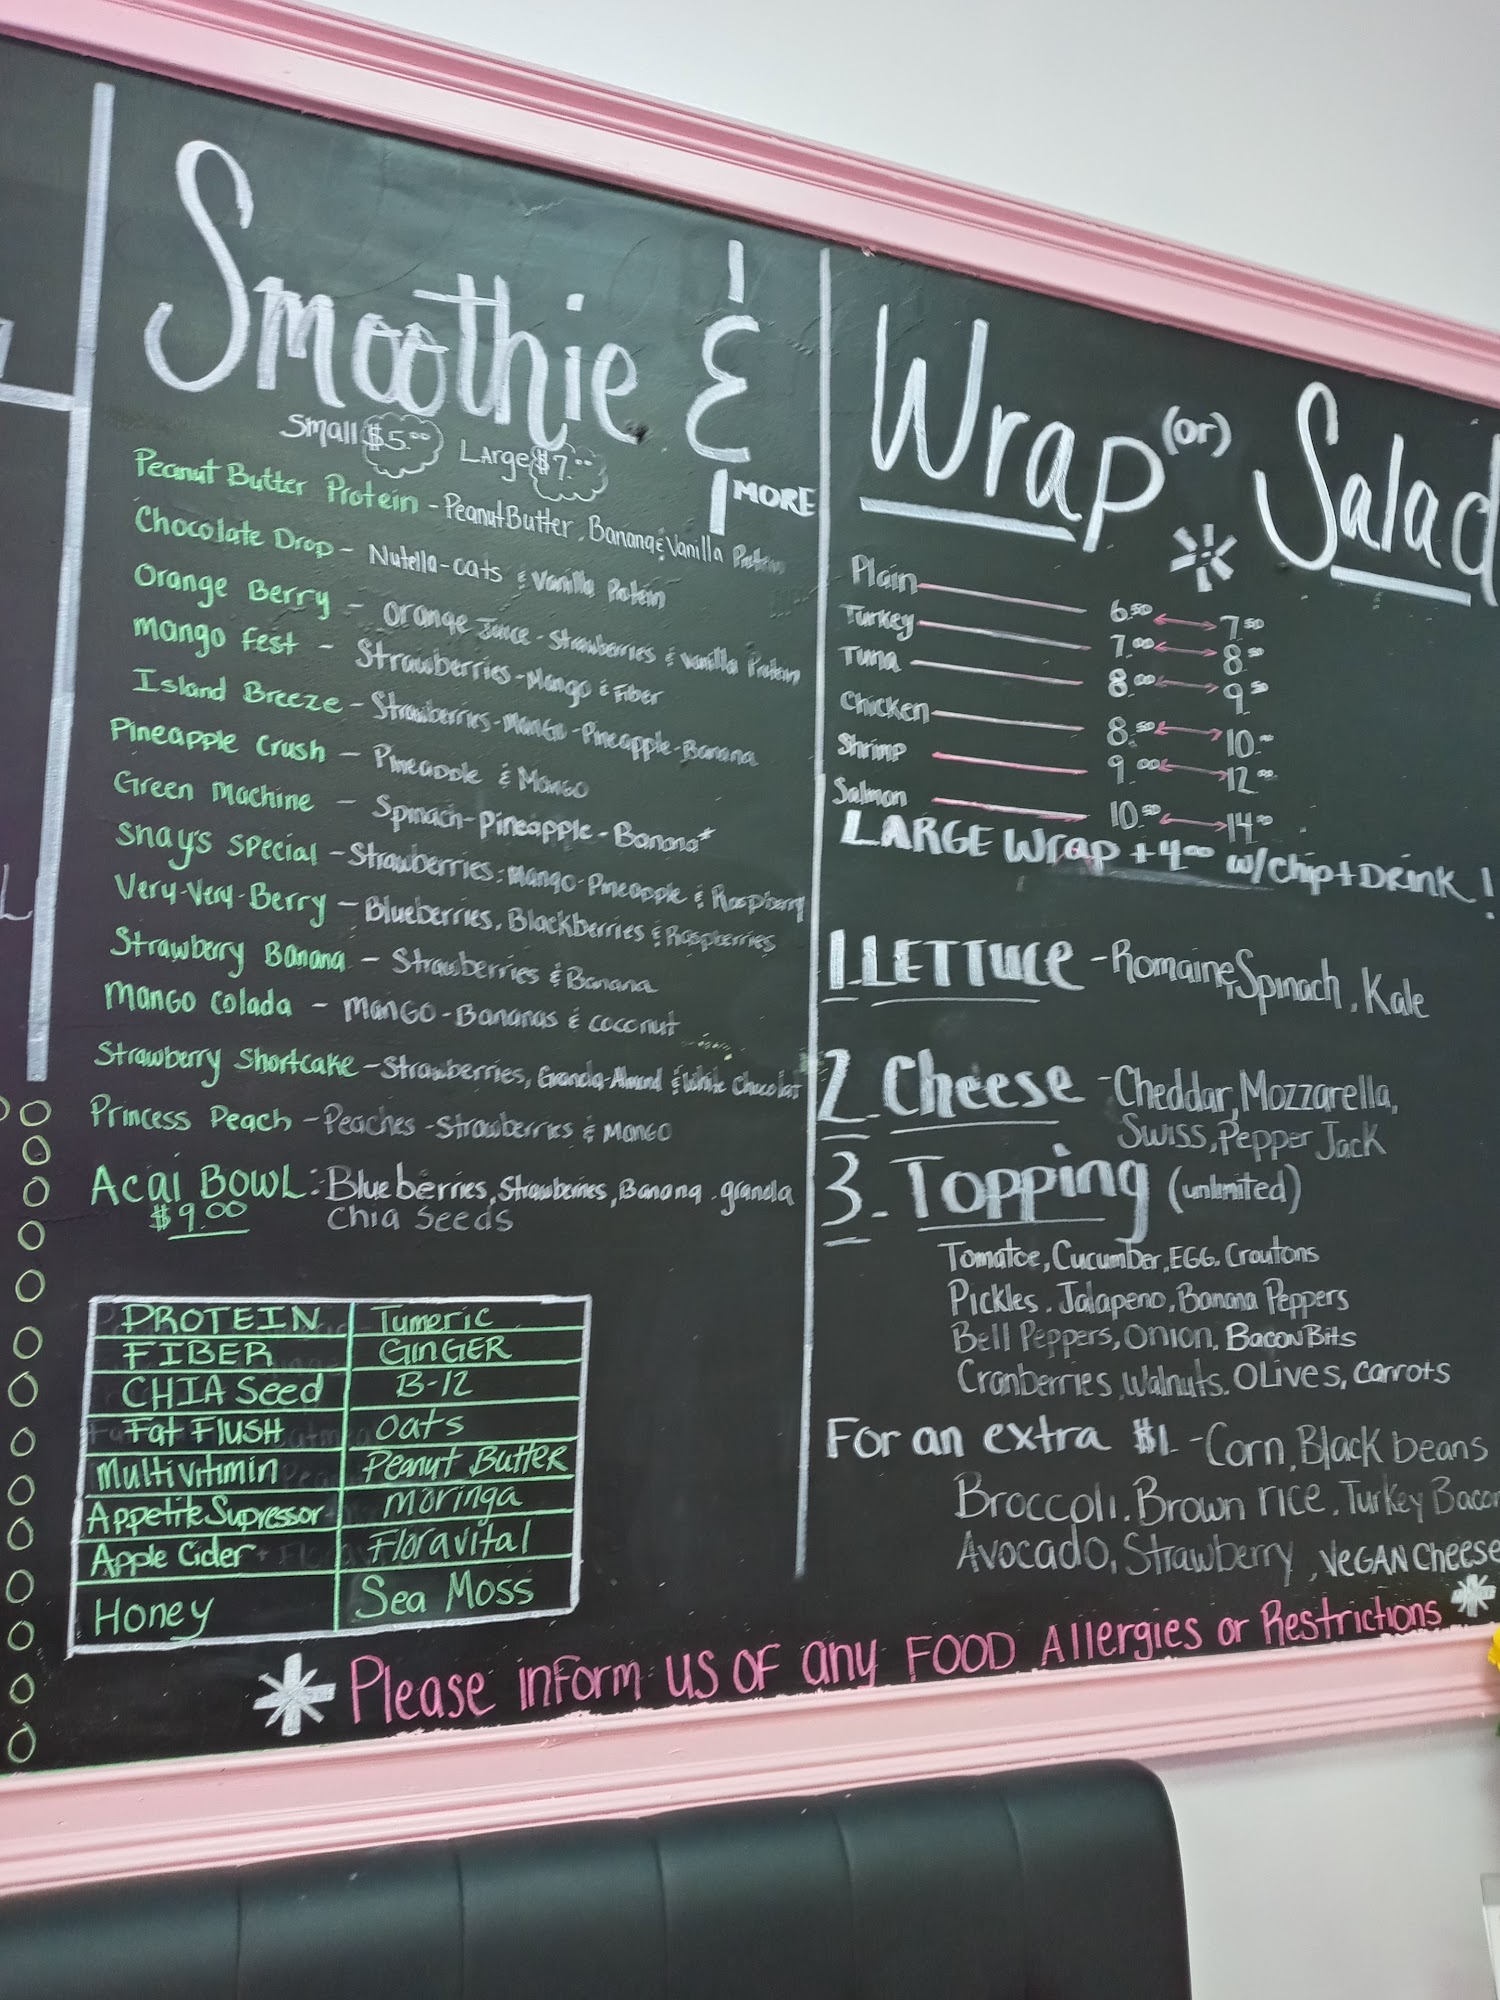 Smoothie &
Small $5.00 Large $7.00
MORE
Peanut Butter Protein - Peanut Butter, Banana & Vanilla Protein
Chocolate Drop - Nutella-oats & Vanilla Protein
Orange Berry - Orange Juice - Strawberries & Vanilla Protein
Mango Fest - Strawberries - Mango & Fiber
Island Breeze - Strawberries - Mango - Pineapple - Banana
Pineapple Crush - Pineapple & Mango
Green Machine - Spinach - Pineapple - Banana*
Snay's Special - Strawberries - Mango - Pineapple & Raspberry
Very-Very-Berry - Blueberries, Blackberries & Raspberries
Strawberry Banana - Strawberries & Banana
Mango Colada - Mango - Bananas & coconut
Strawberry Shortcake - Strawberries, Granola-Almond & White Chocolat
Princess Peach - Peaches - Strawberries & Mango
Acai Bowl: Blueberries, Strawberries, Banana, granola
$9.00 Chia Seeds
PROTEIN Tumeric
FIBER GINGER
CHIA Seed B-12
Fat FLUSH oats
Multivitimin Peanut Butter
Appetite Supressor moringa
Apple Cider Floravital
Honey Sea Moss
Wrap (or) Salad
Plain 6.50 7.50
Turkey 7.00 8.50
Tuna 8.00 9.50
Chicken 8.50 10.00
Shrimp 9.00 12.00
Salmon 10.50 14.00
LARGE Wrap +4.00 w/chip+DRINK!
1. LETTUCE - Romaine, Spinach, Kale
2. Cheese - Cheddar, Mozzarella,
Swiss, Pepper Jack
3. Topping (unlimited)
Tomatoe, Cucumber, EGG, Croutons
Pickles, Jalapeno, Banana Peppers
Bell Peppers, Onion, Bacon Bits
Cranberries, Walnuts, OLives, carrots
For an extra $1 - Corn, Black beans
Broccoli, Brown rice, Turkey Bacon
Avocado, Strawberry, VEGAN Cheese
* Please inform us of any FOOD Allergies or Restrictions *